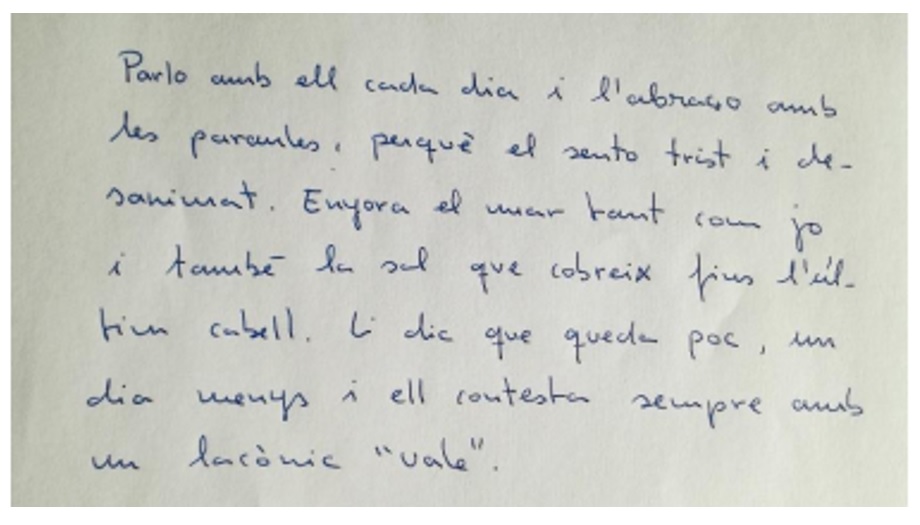 Parlo amb ell cada dia i l'abraço amb
les paraules, perquè el sento trist i de-
sanimat. Enyora el mar tant com jo
i també la sal que cobreix fins l'úl-
tim cabell. Li dic que queda poc, un
dia menys i ell contesta sempre amb
un lacònic "vale".